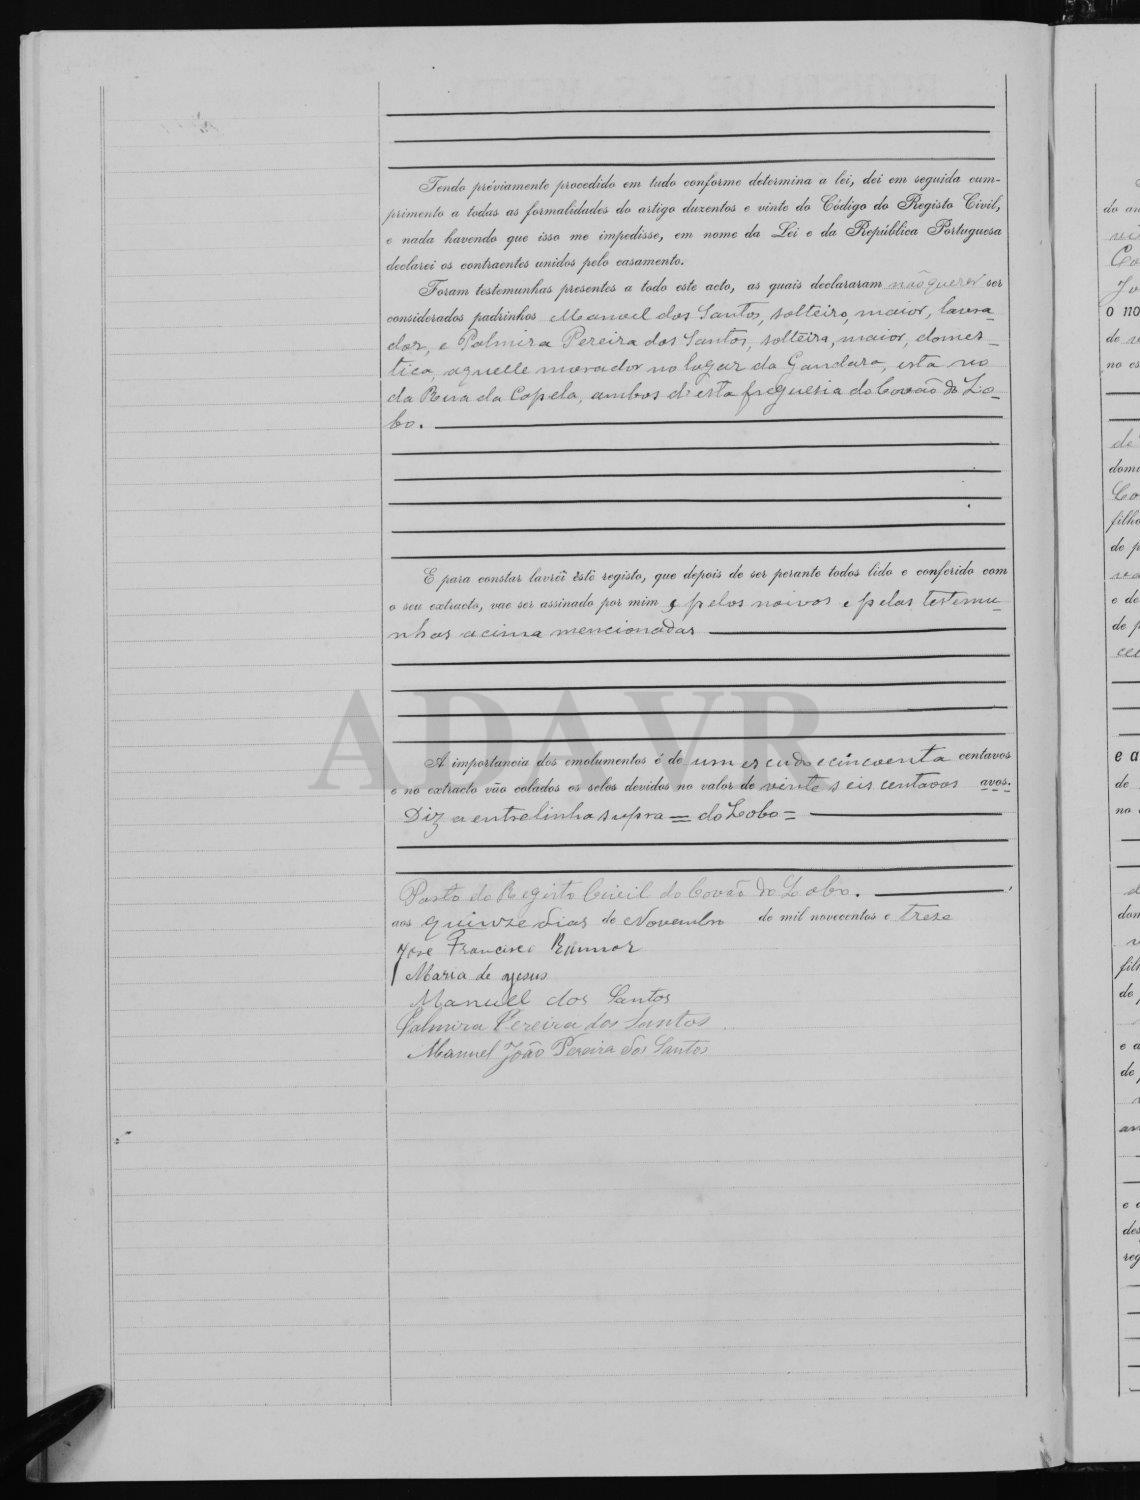 Tendo préviamente procedido em tudo conforme determina a lei, dei em seguida cum-
primento a todas as formalidades do artigo duzentos e vinte do Código do Registo Civil,
e nada havendo que isso me impedisse, em nome da Lei e da República Portuguesa
declarei os contraentes unidos pelo casamento.
Foram testemunhas presentes a todo este acto, as quais declararam não querer ser
considerados padrinhos Manoel dos Santos, solteiro, maior, lavra-
dor, e Palmira Pereira dos Santos, solteira, maior, domes-
tica, aquelle morador no logar da Gandara, esta no
da Rua da Capela, ambos d'esta freguesia do Covão do Lo-
bo.
E para constar lavrei êste registo, que depois de ser perante todos lido e conferido com
o seu extracto, vae ser assinado por mim, pelos noivos e pelas testemu-
nhas acima mencionadas
A importancia dos emolumentos é de um escudo e cincoenta centavos
e no extracto vão colados os selos devidos no valor de vinte seis centavos avos.
Diz a entrelinha supra = do Lobo =
Posto do Registo Civil do Covão do Lobo.
aos quinze dias de Novembro de mil novecentos e treze
José Francisco
Maria de Jesus
Manuel dos Santos
Palmira Pereira dos Santos
Manuel João Pereira dos Santos
ADAVR
do
Co
o no
de
no es
de
dom
Co
filh
de p
e de
de p
e a
de
no
dom
fil
de
e a
de
an
e
des
reg